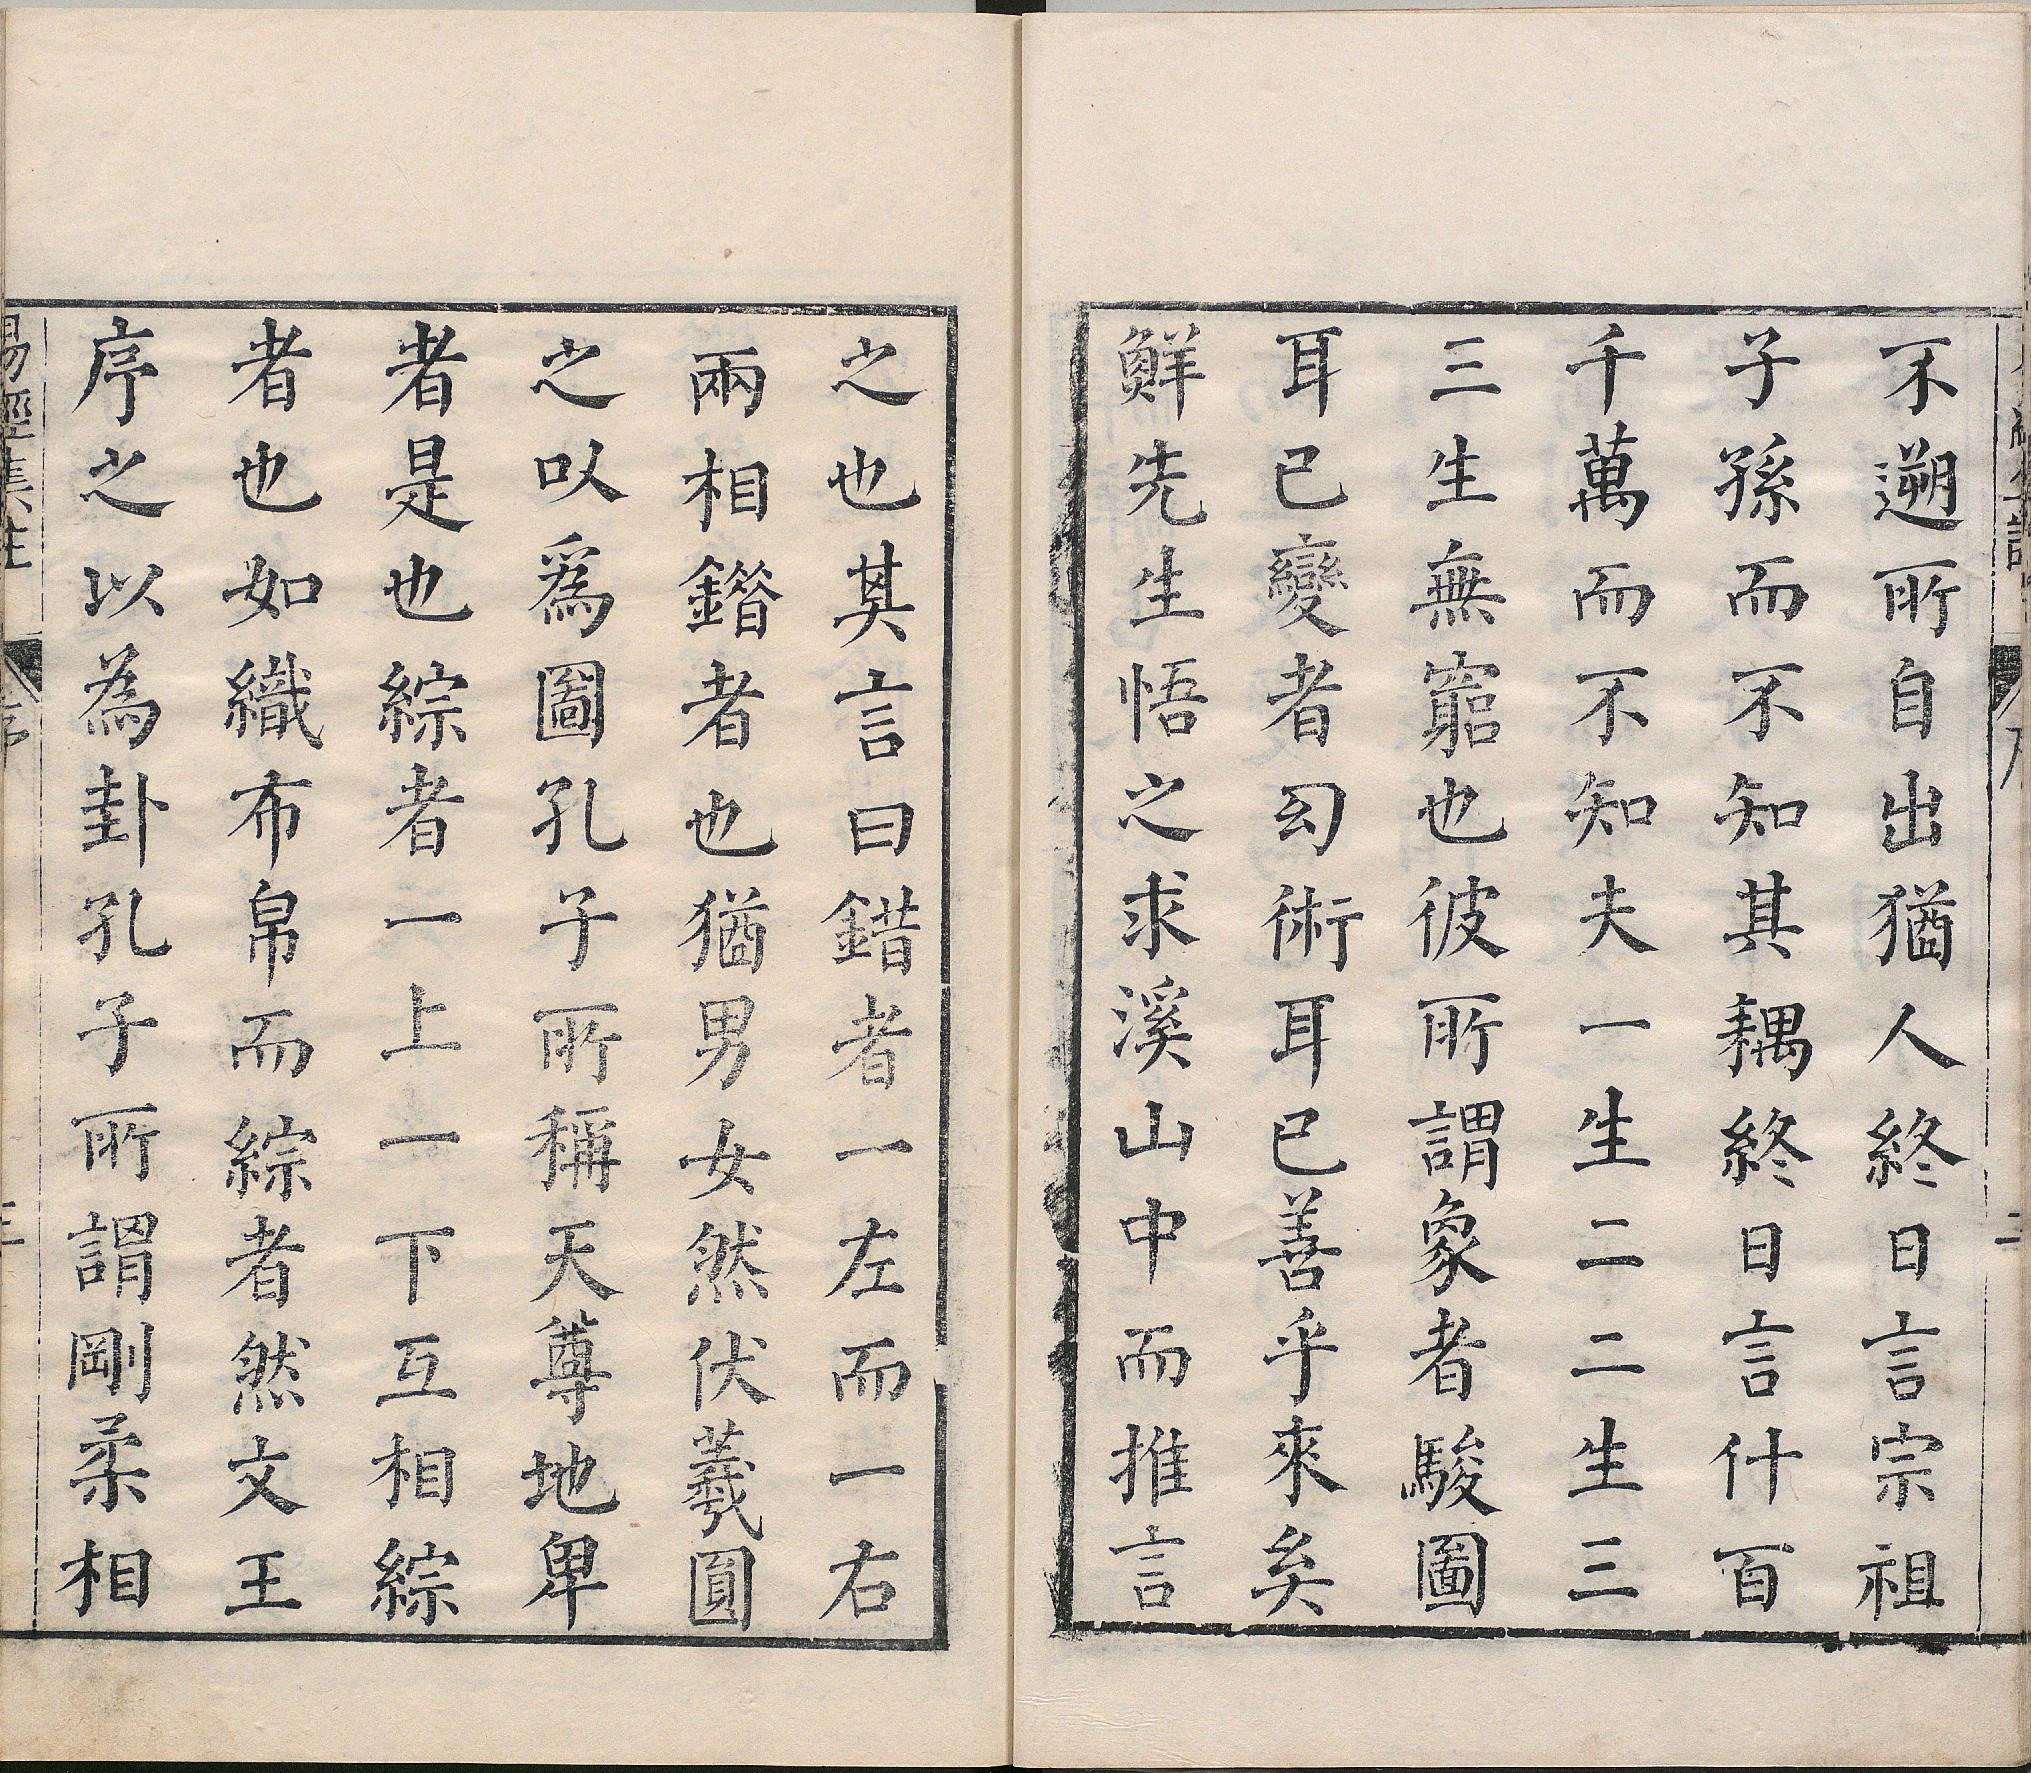 不遡所自出猶人終日言宗祖
子孫而不知其耦終日言什百
千萬而不知夫一生二二生三
三生無窮也彼所謂象者駿圖
耳已變者幻術耳已善乎來矣
鮮先生悟之求溪山中而推言
之也其言曰錯者一左而一右
兩相錯者也猶男女然伏羲圓
之以為圖孔子所稱天尊地卑
者是也綜者一上一下互相綜
者也如織布帛而綜者然文王
序之以為卦孔子所謂剛柔相
易經集註
序
三